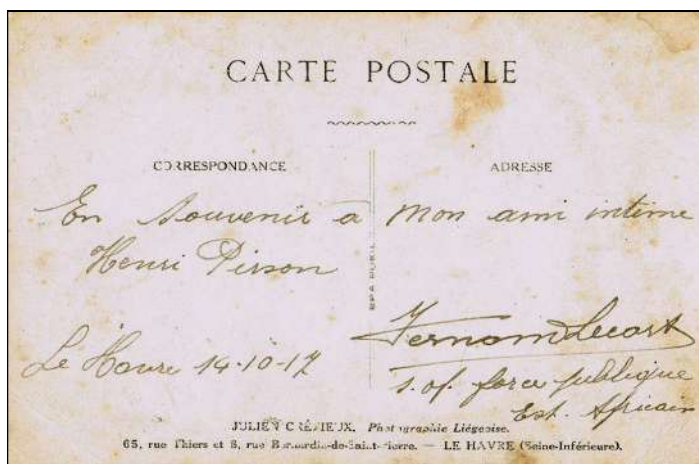 CARTE POSTALE
CORRESPONDANCE
ADRESSE
En Souvenir a mon ami intime
Henri Pirson
Le Havre 14-10-17
Fernand Lecart
s. of. force publique
Est. Africain
JULIEN CRÉVIEUX. Photographie Liégeoise.
65, rue Thiers et 8, rue Bernardin-de-Saint-Pierre. — LE HAVRE (Seine-Inférieure).